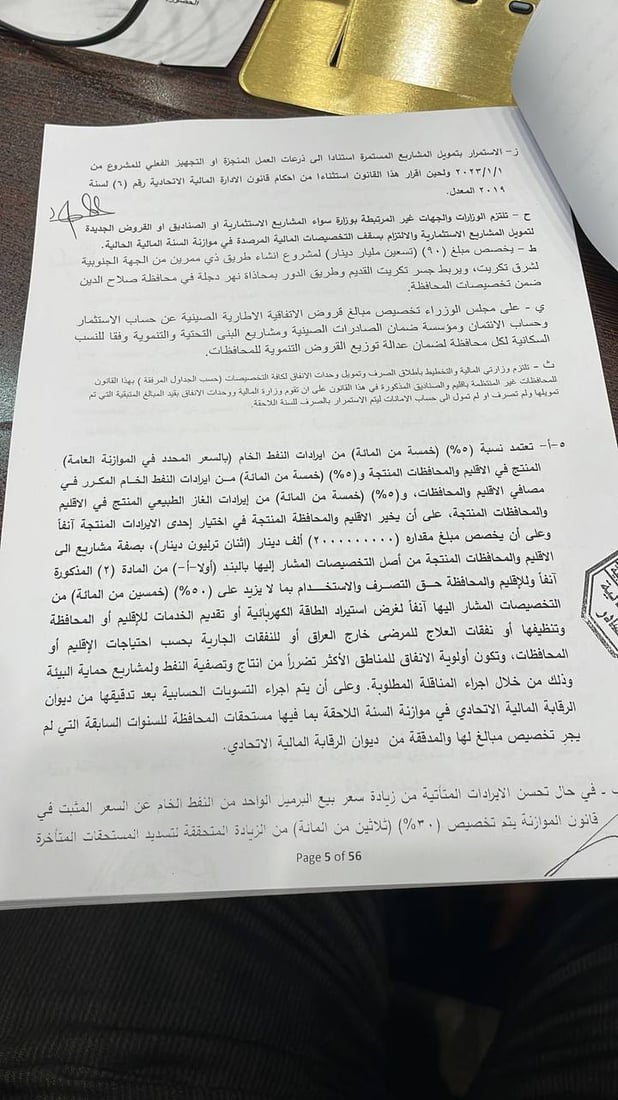 ز- الاستمرار بتمويل المشاريع المستمرة استنادا الى ذرعات العمل المنجزة او التجهيز الفعلي للمشروع من
٢٠٢٣/١/١ ولحين اقرار هذا القانون استثناءا من احكام قانون الادارة المالية الاتحادية رقم (٦) لسنة
٢٠١٩ المعدل.
ح – تلتزم الوزارات والجهات غير المرتبطة بوزارة سواء المشاريع الاستثمارية او الصناديق او القروض الجديدة
لتمويل المشاريع الاستثمارية والالتزام بسقف التخصيصات المالية المرصدة في موازنة السنة المالية الحالية.
ط – يخصص مبلغ (٩٠) (تسعين مليار دينار) لمشروع انشاء طريق ذي ممرين من الجهة الجنوبية
لشرق تكريت، ويربط جسر تكريت القديم وطريق الدور بمحاذاة نهر دجلة في محافظة صلاح الدين
ضمن تخصيصات المحافظة.
ي - على مجلس الوزراء تخصيص مبالغ قروض الاتفاقية الاطارية الصينية عن حساب الاستثمار
وحساب الائتمان ومؤسسة ضمان الصادرات الصينية ومشاريع البنى التحتية والتنموية وفقا للنسب
السكانية لكل محافظة لضمان عدالة توزيع القروض التنموية للمحافظات.
ث – تلتزم وزارتي المالية والتخطيط بأطلاق الصرف وتمويل وحدات الانفاق لكافة التخصيصات (حسب الجداول المرفقة ) بهذا القانون
للمحافظات غير المنتظمة بأقليم والصناديق المذكورة في هذا القانون على ان تقوم وزارة المالية ووحدات الانفاق بقيد المبالغ المتبقية التي تم
تمويلها ولم تصرف او لم تمول الى حساب الامانات ليتم الاستمرار بالصرف للسنة اللاحقة.
٥-أ- تعتمد نسبة (٥%) (خمسة من المائة) من ايرادات النفط الخام (بالسعر المحدد في الموازنة العامة)
المنتج في الاقليم والمحافظات المنتجة و(٥%) (خمسة من المائة) من ايرادات النفط الخام المكرر في
مصافي الاقليم والمحافظات، و(٥%) (خمسة من المائة) من إيرادات الغاز الطبيعي المنتج في الاقليم
والمحافظات المنتجة، على أن يخير الاقليم والمحافظة المنتجة في اختيار إحدى الايرادات المنتجة آنفاً
وعلى أن يخصص مبلغ مقداره (٢٠٠٠٠٠٠٠٠٠) ألف دينار (اثنان ترليون دينار)، بصفة مشاريع الى
الاقليم والمحافظات المنتجة من أصل التخصيصات المشار إليها بالبند (أولا-أ-) من المادة (٢) المذكورة
آنفاً وللإقليم والمحافظة حق التصرف والاستخدام بما لا يزيد على (٥٠%) (خمسين من المائة) من
التخصيصات المشار اليها آنفاً لغرض استيراد الطاقة الكهربائية أو تقديم الخدمات للإقليم أو المحافظة
وتنظيفها أو نفقات العلاج للمرضى خارج العراق أو للنفقات الجارية بحسب احتياجات الإقليم أو
المحافظات، وتكون أولوية الانفاق للمناطق الأكثر تضرراً من انتاج وتصفية النفط ولمشاريع حماية البيئة
وذلك من خلال اجراء المناقلة المطلوبة. وعلى أن يتم اجراء التسويات الحسابية بعد تدقيقها من ديوان
الرقابة المالية الاتحادي في موازنة السنة اللاحقة بما فيها مستحقات المحافظة للسنوات السابقة التي لم
يجرِ تخصيص مبالغ لها والمدققة من ديوان الرقابة المالية الاتحادي.
- في حال تحسن الايرادات المتأتية من زيادة سعر بيع البرميل الواحد من النفط الخام عن السعر المثبت في
قانون الموازنة يتم تخصيص (٣٠%) (ثلاثين من المائة) من الزيادة المتحققة لتسديد المستحقات المتأخرة
Page 5 of 56